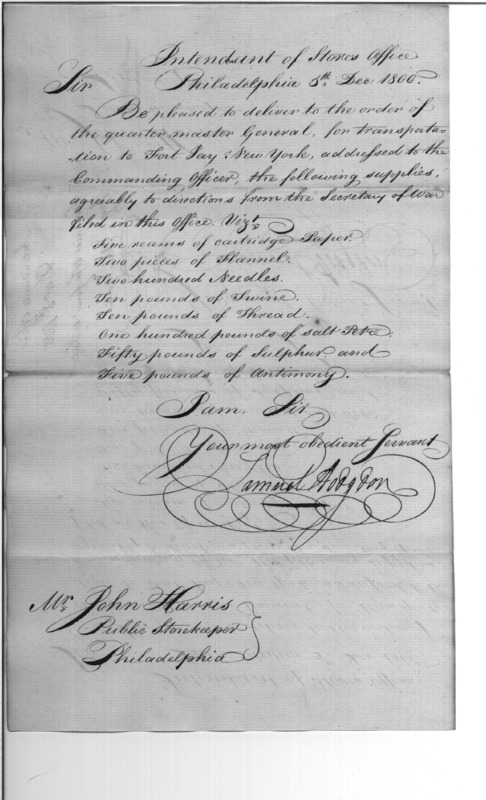 Intendant of Stores Office
Sir Philadelphia 8th Dec. 1800.
Be pleased to deliver to the order of
the quarter master General, for transporta-
-tion to Fort Jay New York, addressed to the
Commanding Officer, the following supplies,
agreeably to directions from the Secretary of War
filed in this Office. Vizt.
Five reams of cartridge Paper.
Two pieces of Flannel.
Two hundred Needles.
Ten pounds of Twine.
Ten pounds of Thread.
One hundred pounds of salt Petre.
Fifty pounds of Sulphur, and
Five pounds of Antimony.
I am, Sir
Your most obedient Servant
Samuel Hodgdon
Mr. John Harris
Public Storekeeper
Philadelphia